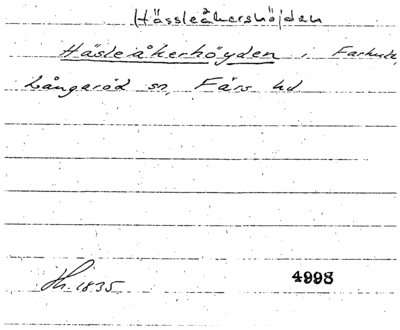 Hässleåkershöjden
Häsleåkerhöyden i Farhult,
Långaröd sn, Färs hd
Th. 1835
4998